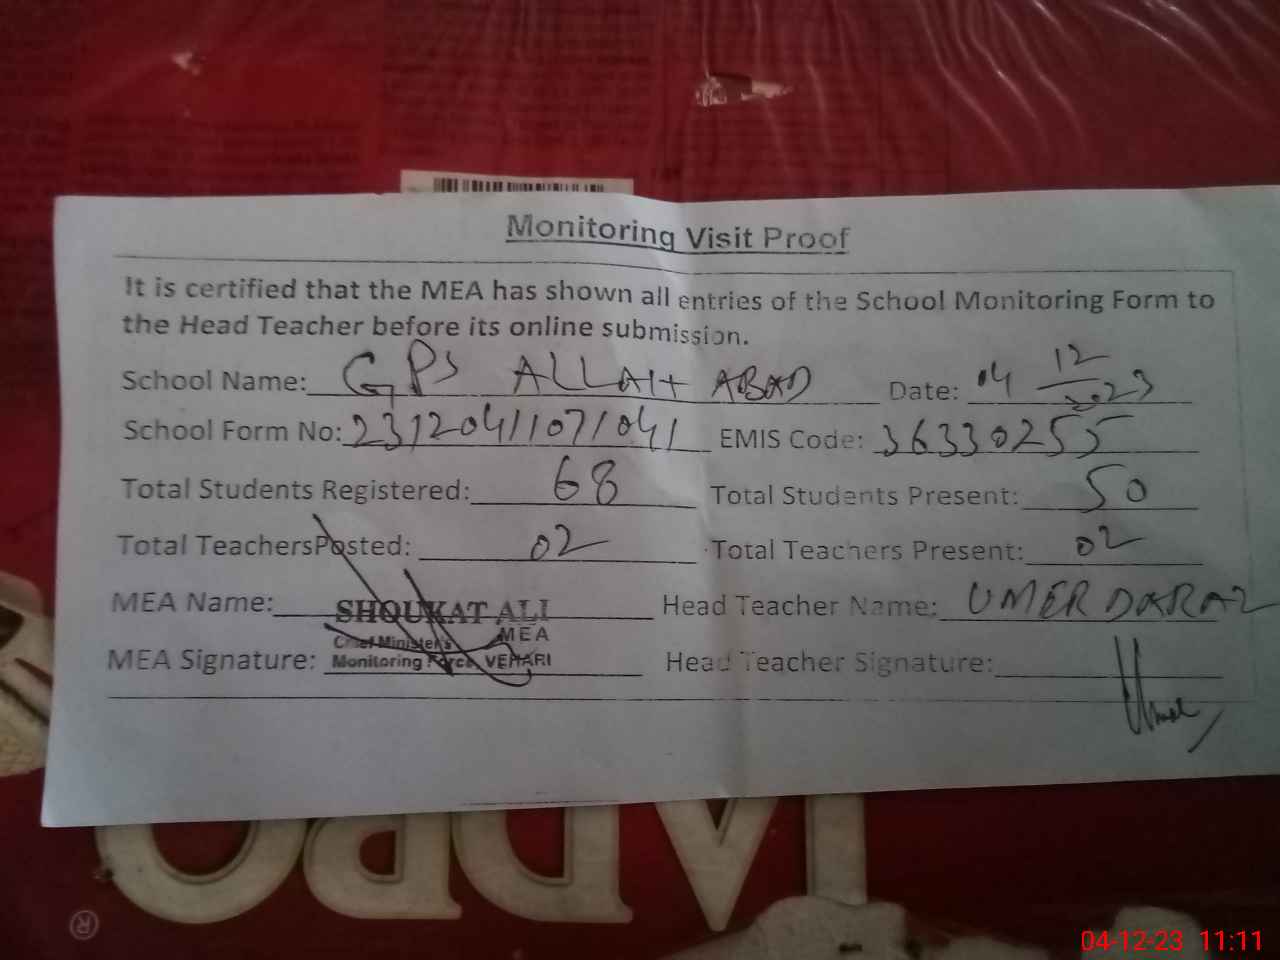 Monitoring Visit Proof
It is certified that the MEA has shown all entries of the School Monitoring Form to
the Head Teacher before its online submission.
School Name: GPS ALLAH ABAD Date: 04 12 2023
School Form No: 23120411071041 EMIS Code: 36330255
Total Students Registered: 68 Total Students Present: 50
Total TeachersPosted: 02 Total Teachers Present: 02
MEA Name: SHOUKAT ALI Head Teacher Name: UMER DARAZ
MEA
Chief Minister's
MEA Signature: Monitoring Force, VEHARI Head Teacher Signature: Umer
®
04-12-23 11:11